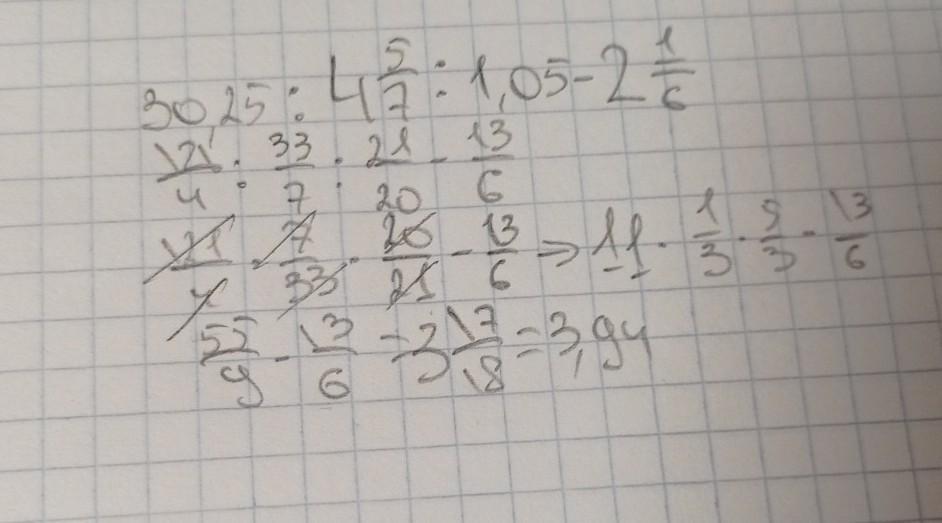 30,25 : 4 5/7 : 1,05 - 2 1/6
121/4 : 33/7 : 21/20 - 13/6
121/4 · 7/33 · 20/21 - 13/6 => 11 · 1/3 · 5/3 - 13/6
55/9 - 13/6 = 3 17/18 = 3,94